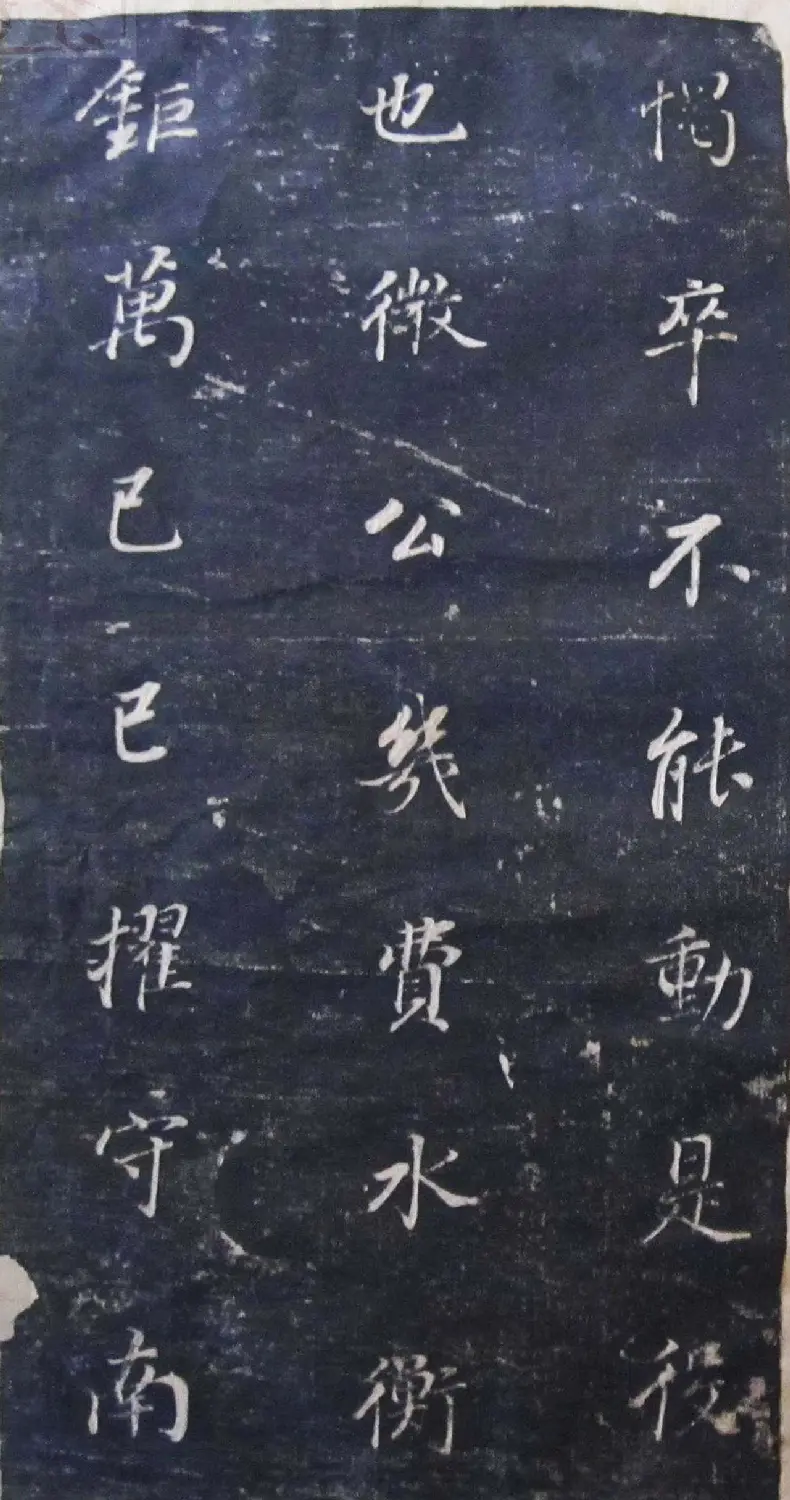 愒卒不能動是役
也微公幾費水衡
鉅萬已已擢守南